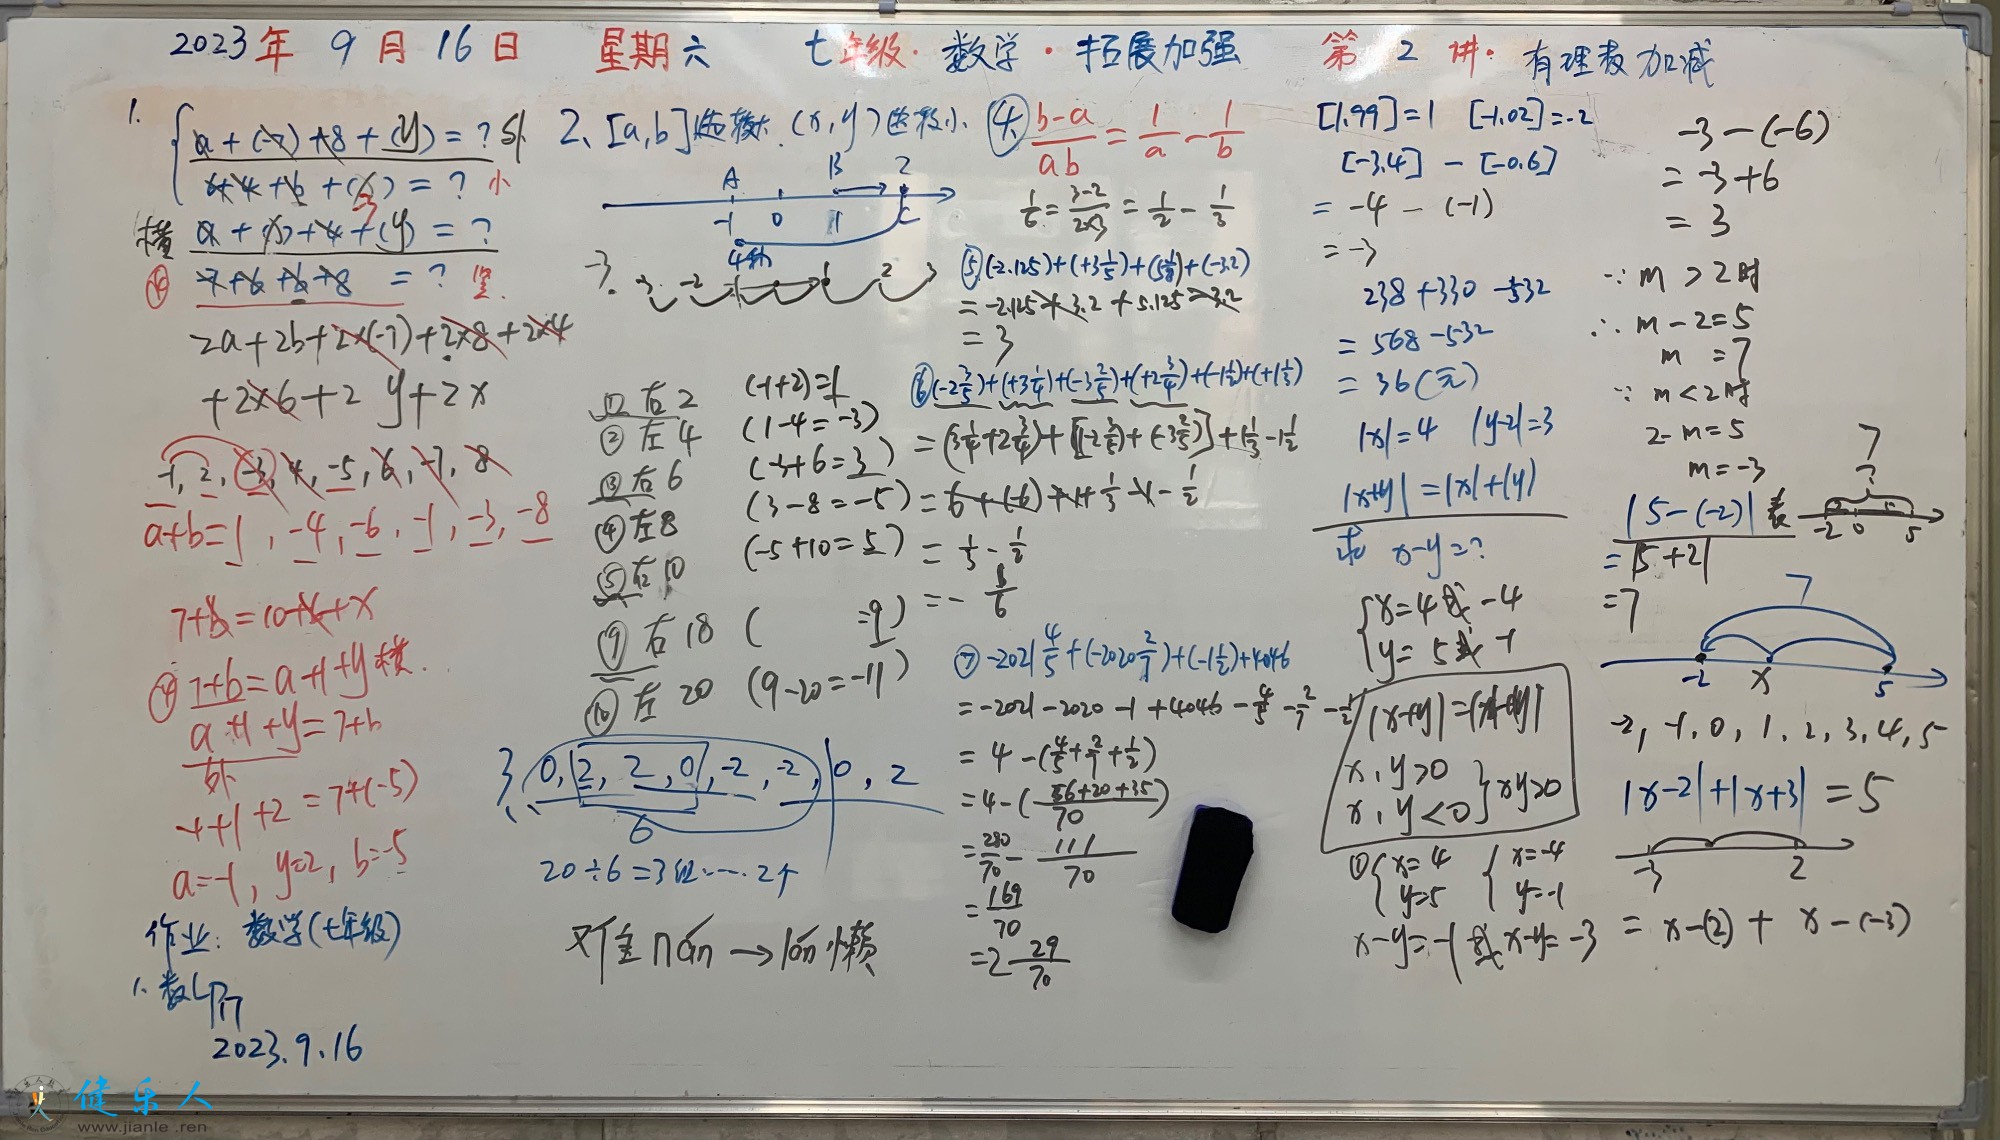 2023年 9月16日 星期六 七年级·数学·拓展加强 第2讲·有理数加减
1.
a+(-7)+8+(y)=? 外
+4+b+( )=? 小
横 a+(x)+4+(y)=?
-7+6+b+8 =? 竖
2a+2b+2×(-7)+2×8+2×4
+2×6+2y+2x
-1, 2, -3, 4, -5, 6, -7, 8
a+b=1, -4, -6, -1, -3, -8
7+b=a+1+y横.
a+1+y=7+b
-1+1+2=7+(-5)
a=-1, y=2, b=-5
作业: 数学(七年级)
1. 数 P17
2023.9.16
2、[a,b]选较大. (x,y)选较小.
A B 2
-1 0 1 C
-3 -2 -1 1 2 3
① 右2 (-1+2)=1
② 左4 (1-4=-3)
③ 右6 (-3+6=3)
④ 左8 (3-8=-5)
⑤ 右10 (-5+10=5)
⑨ 右18 ( =9)
⑩ 左20 (9-20=-11)
3、 0, 2, 2, 0, -2, -2, 0, 2
6
20÷6=3组……2个
nán → lǎn 懒
④ b-a/ab = 1/a - 1/b
1/6 = 3-2/2×3 = 1/2 - 1/3
⑤ (-2.125)+(+3 1/5)+(5 1/8)+(-3.2)
= -2.125+3.2+5.125-3.2
= 3
⑥ (-2 3/5)+(+3 1/4)+(-3 2/5)+(+2 3/4)+(-1 1/2)+(+1 1/3)
= (3 1/4+2 3/4)+[(-2 3/5)+(-3 2/5)]+1 1/3-1 1/2
= 6+(-6)+1+1/3-1-1/2
= 1/3 - 1/2
= - 1/6
⑦ -2021 4/5+(-2020 2/7)+(-1 1/2)+4046
= -2021-2020-1+4046-4/5-2/7-1/2
= 4-(4/5+2/7+1/2)
= 4-(56+20+35/70)
= 280/70 - 111/70
= 169/70
= 2 29/70
[1.99]=1 [-1.02]=-2
[-3.4] - [-0.6]
= -4 - (-1)
= -3
238+330-532
= 568-532
= 36(元)
|x|=4 |y-2|=3
|x+y|=|x|+|y|
求 x-y=?
x=4或-4
y=5或-1
|x+y|=|x|+|y|
x,y>0
x,y<0 } xy>0
① x=4 x=-4
y=5 y=-1
x-y=-1或x-y=-3
-3-(-6)
= -3+6
= 3
∵ m>2时
∴ m-2=5
m =7
∵ m<2时
2-m=5
m=-3
|5-(-2)| 表
7
?
-2 0 5
= |5+2|
=7
7
-2 x 5
-2, -1, 0, 1, 2, 3, 4, 5
|x-2|+|x+3|=5
-3 2
= x-(2)+x-(-3)
健乐人
www.jianle.ren